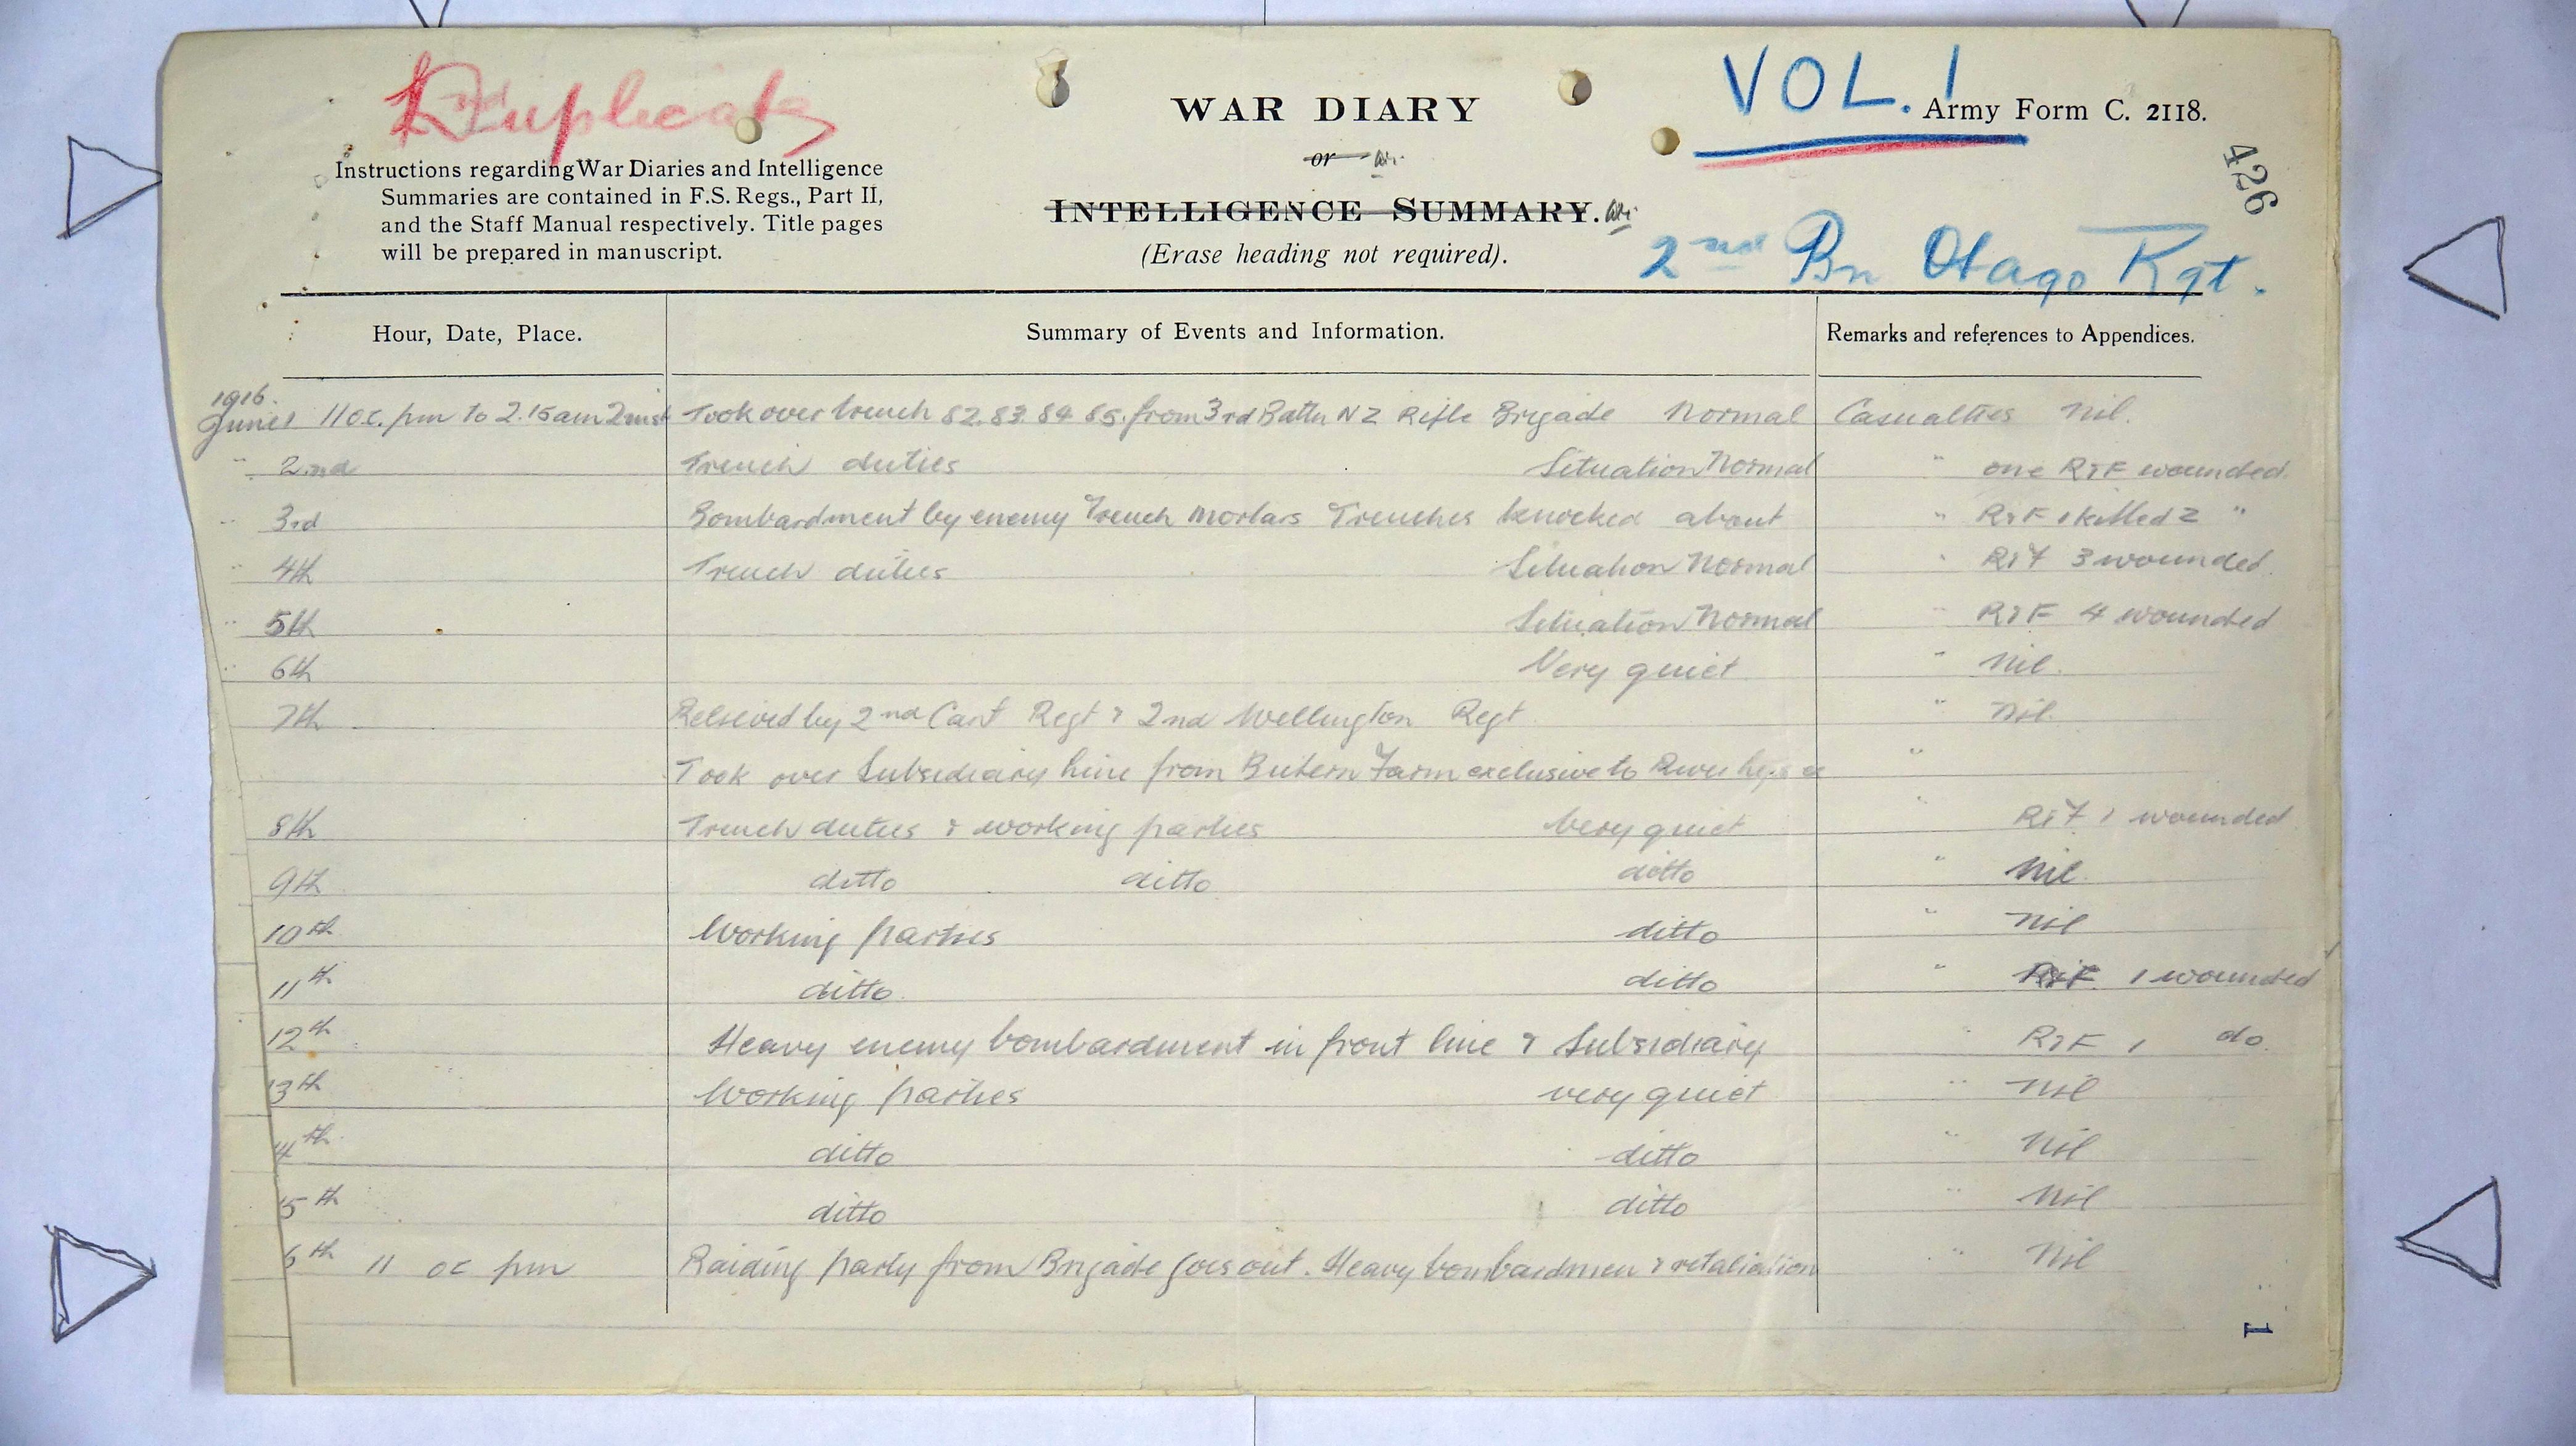 Duplicate
VOL. 1
WAR DIARY
Army Form C. 2118.
or
426
Instructions regarding War Diaries and Intelligence
Summaries are contained in F.S. Regs., Part II,
and the Staff Manual respectively. Title pages
will be prepared in manuscript.
INTELLIGENCE SUMMARY.
(Erase heading not required).
2nd Bn Otago Rgt.
Hour, Date, Place. Summary of Events and Information. Remarks and references to Appendices.
1916.
June 1 11 oc. pm to 2.15 am 2 inst Took over trench 82. 83. 84 85. from 3rd Battn NZ Rifle Brigade Normal Casualties Nil.
" 2nd Trench duties Situation Normal " one R&F wounded.
" 3rd Bombardment by enemy Trench Mortars Trenches knocked about " R&F 1 killed 2 "
" 4th Trench duties Situation Normal " R&F 3 wounded.
" 5th Situation Normal " R&F 4 wounded
" 6th Very quiet " Nil.
7th Releived by 2nd Cant Regt & 2nd Wellington Regt " Nil.
Took over Subsidiary Line from Farm exclusive to River "
8th Trench duties & working parties very quiet " R&F 1 wounded
9th ditto ditto ditto " Nil.
10th Working parties ditto " Nil
11th ditto. ditto " R&F 1 wounded
12th Heavy enemy bombardment in front line & Subsidiary " R&F 1 do.
13th Working parties very quiet " Nil
14th ditto ditto " Nil
15th ditto ditto " Nil
6th 11 oc pm Raiding party from Brigade goes out. Heavy bombardmen & retaliation " Nil
1